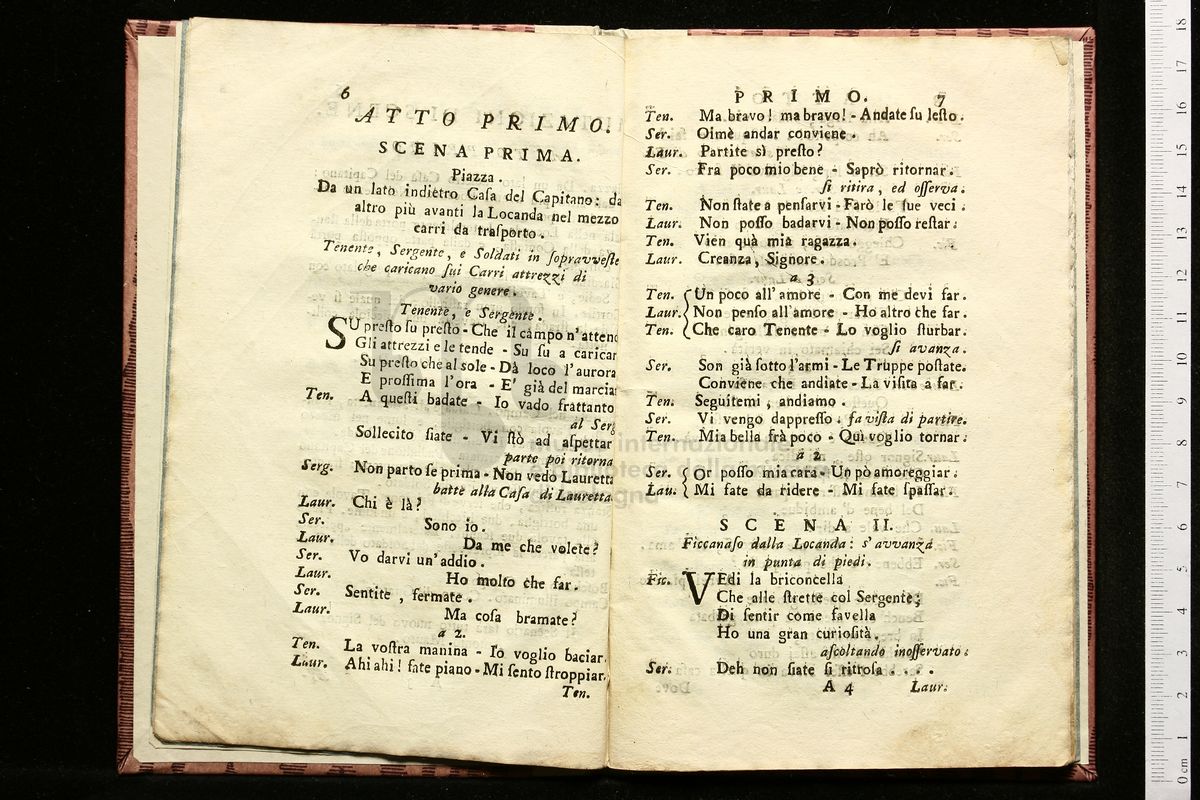 6
ATTO PRIMO.
SCENA PRIMA.
Piazza.
Da un lato indietro Caſa del Capitano: da
altro più avanti la Locanda nel mezzo
carri da traſporto.
Tenente, Sergente, e Soldati in ſopravveſte
che caricano ſui Carri attrezzi di
vario genere.
Tenente, e Sergente.
SU preſto ſu preſto - Che il campo n'atten
Gli attrezzi e le tende - Su ſu a caricar
Su preſto che al sole - Dà loco l'aurora
E proſſima l'ora - E' già del marciar
Ten. A queſti badate - Io vado frattanto
al Serg
Sollecito ſiate - Vi ſtò ad aſpettar
parte poi ritorna
Serg. Non parto ſe prima - Non vedo Lauretta
batte alla Caſa di Lauretta.
Laur. Chi è là?
Ser. Sono io.
Laur. Da me che volete?
Ser. Vo darvi un'addio.
Laur. Ho molto che far.
Ser. Sentite, fermate.
Laur. Ma coſa bramate?
a 2.
Ten. La voſtra manina - Io voglio baciar.
Laur. Ahi ahi! fate piano - Mi ſento ſtroppiar.
Ten.
PRIMO. 7
Ten. Ma bravo! ma bravo! - Andate ſu leſto.
Ser. Oimè andar conviene.
Laur. Partite sì preſto?
Ser. Fra poco mio bene - Saprò ritornar.
ſi ritira, ed oſſerva.
Ten. Non ſtate a penſarvi - Farò le ſue veci.
Laur. Non poſſo badarvi - Non poſſo reſtar.
Ten. Vien quà mia ragazza.
Laur. Creanza, Signore.
a 3
Ten. Un poco all'amore - Con me devi far.
Laur. Non penſo all'amore - Ho altro che far.
Ten. Che caro Tenente - Lo voglio ſturbar.
ſi avanza.
Ser. Son già ſotto l'armi - Le Truppe poſtate.
Conviene che andiate - La viſita a far.
Ten. Seguitemi, andiamo.
Ser. Vi vengo dappreſſo. fa viſta di partire.
Ten. Mia bella frà poco - Quì voglio tornar.
a 2.
Ser. Or poſſo mia cara - Un pò amoreggiar.
Lau. Mi fate da ridere - Mi fate ſpaſſar.
SCENA II.
Ficcanaſo dalla Locanda: s'avvanza
in punta di piedi.
Fic. VEdi la briconcella
Che alle ſtrette col Sergente;
Di ſentir come favella
Ho una gran curioſità.
aſcoltando inoſſervato.
Ser. Deh non ſiate ſi ritroſa....
A 4 Laur.
internazionale